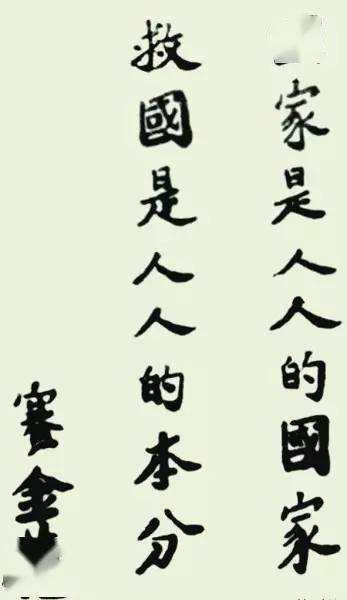 家是人人的國家
救國是人人的本分
賽金